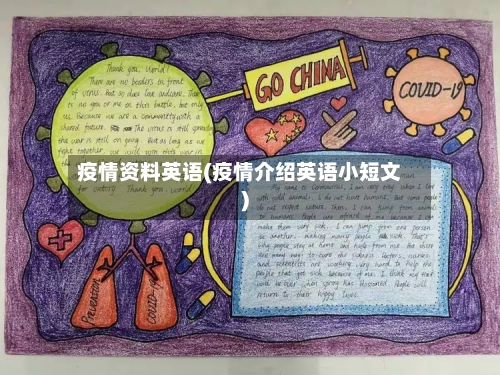 Thank you, world!
There are no borders in front
of virus, but so does love and care. There
is no you or me in this battle, but only
us. Because we are a community with a
shared future. The virus is still spreading
the war is still on going. But as long as we
fight together, we will win this war in
for victory. Thank you, world!
GO CHINA
COVID-19
疫情资料英语(疫情介绍英语小短文
)
My name is Coronavirus, I am very
with wild animals. I do not have humans. But some people
do not respect nature
to human. People are afraid of me because I
make them very sick. I can jump from one person
to another, making many people sick. That's
why people stay at home and hide from me. But there
are many ways to cure the sickness. Doctors, nurses
and scientists are working very hard to help the
people that got sick because of me. I think my
will be over when spring has blossomed. People will
return to their happy lives.
Prevention
COVID-19